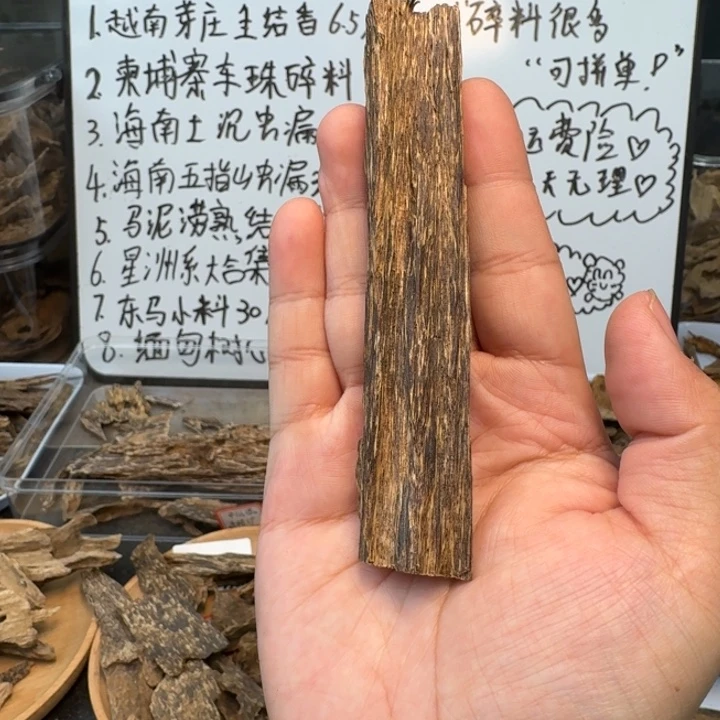 1.越南芽庄生结香65 碎料很香
2.柬埔寨车珠碎料
"可拼单!"
3.海南土沉虫漏
运费险♡
4.海南五指山虫漏
天无理♡
5.马泥涝熟结
6.星洲系大合集
7.东马小料30
8.缅甸树心